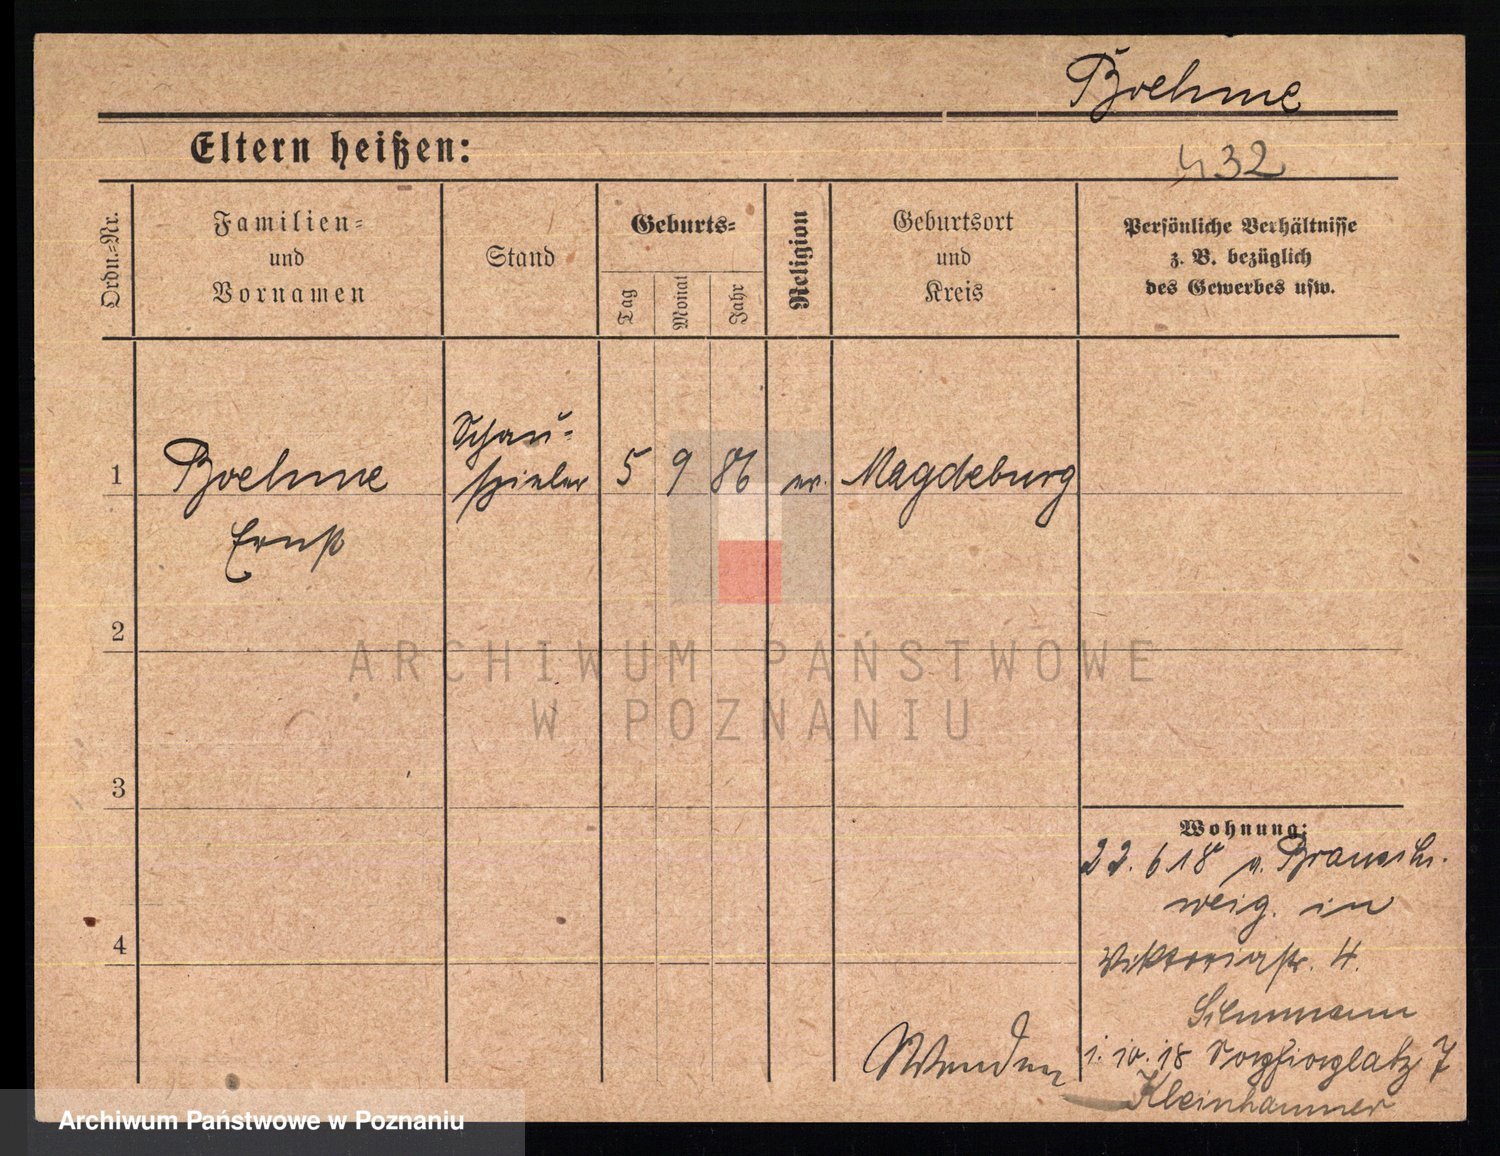 Boehme
Eltern heißen:
432
Ordn.-Nr.
Familien-
und
Vornamen
Stand
Geburts-
Tag
Monat
Jahr
Religion
Geburtsort
und
Kreis
Persönliche Verhältnisse
z. B. bezüglich
des Gewerbes usw.
1
Boehme
Ernst
Schau-
spieler
5 9 86 ev. Magdeburg
2
ARCHIWUM PAŃSTWOWE
W POZNANIU
3
Wohnung:
22. 6 18 v. Braunsch-
weig. in
4
Viktoriastr. 4.
1. 10. 18 7
Kleinhammer
Archiwum Państwowe w Poznaniu